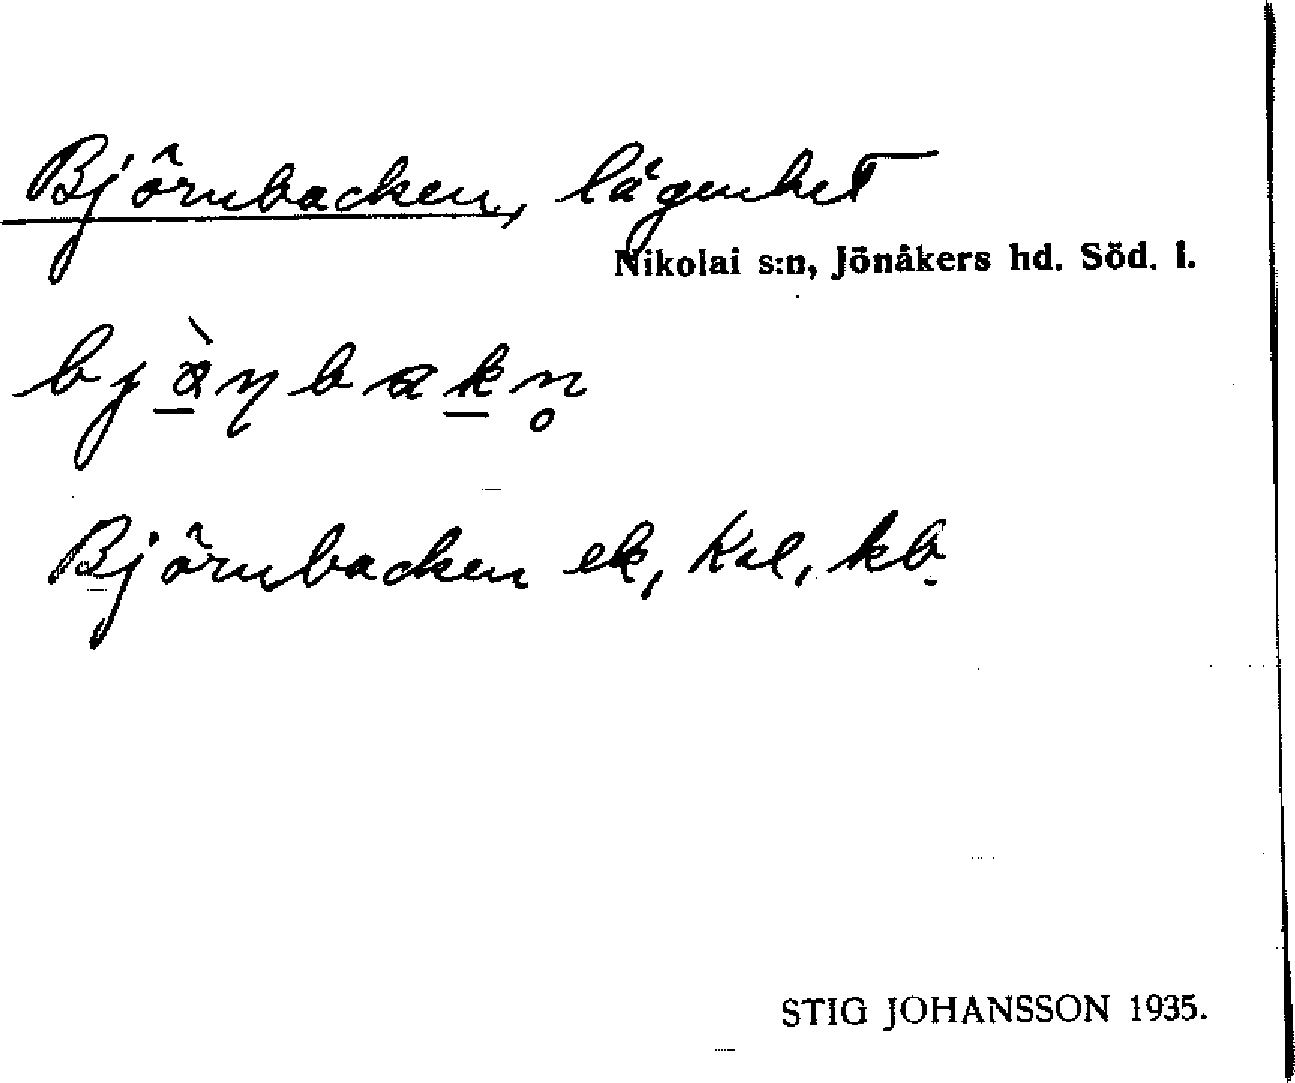 Björnbacken, lägenhet
Nikolai s:n, Jönåkers hd. Söd. l.
Björnbacken ek, kb.
STIG JOHANSSON 1935.